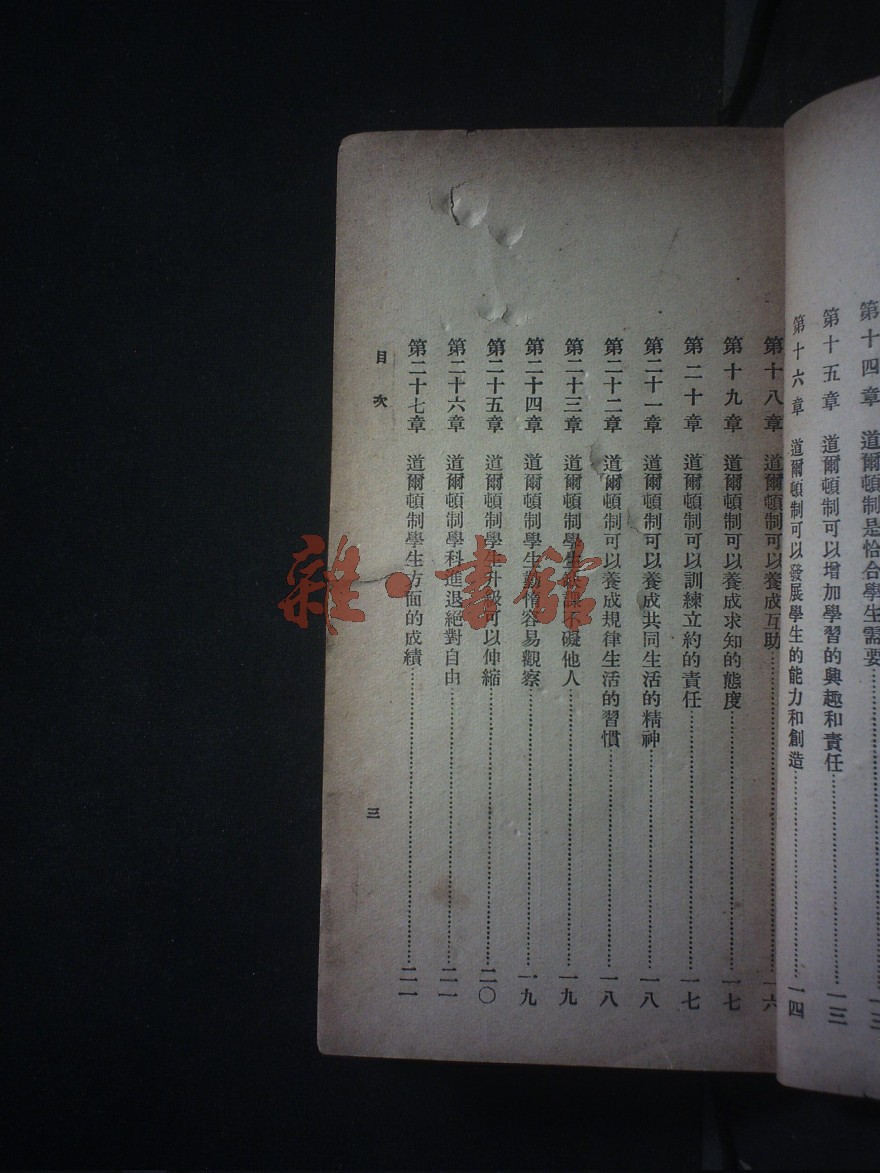 第十四章 道爾頓制是恰合學生需要 一三
第十五章 道爾頓制可以增加學習的興趣和責任 一三
第十六章 道爾頓制可以發展學生的能力和創造 一四
第十八章 道爾頓制可以養成互助 一六
第十九章 道爾頓制可以養成求知的態度 一七
第二十章 道爾頓制可以訓練立約的責任 一七
第二十一章 道爾頓制可以養成共同生活的精神 一八
第二十二章 道爾頓制可以養成規律生活的習慣 一八
第二十三章 道爾頓制學生缺課不礙他人 一九
第二十四章 道爾頓制學生勤惰容易觀察 一九
第二十五章 道爾頓制學生升級可以伸縮 二〇
第二十六章 道爾頓制學科進退絕對自由 二一
第二十七章 道爾頓制學生方面的成績 二一
目次
三
雜·書館